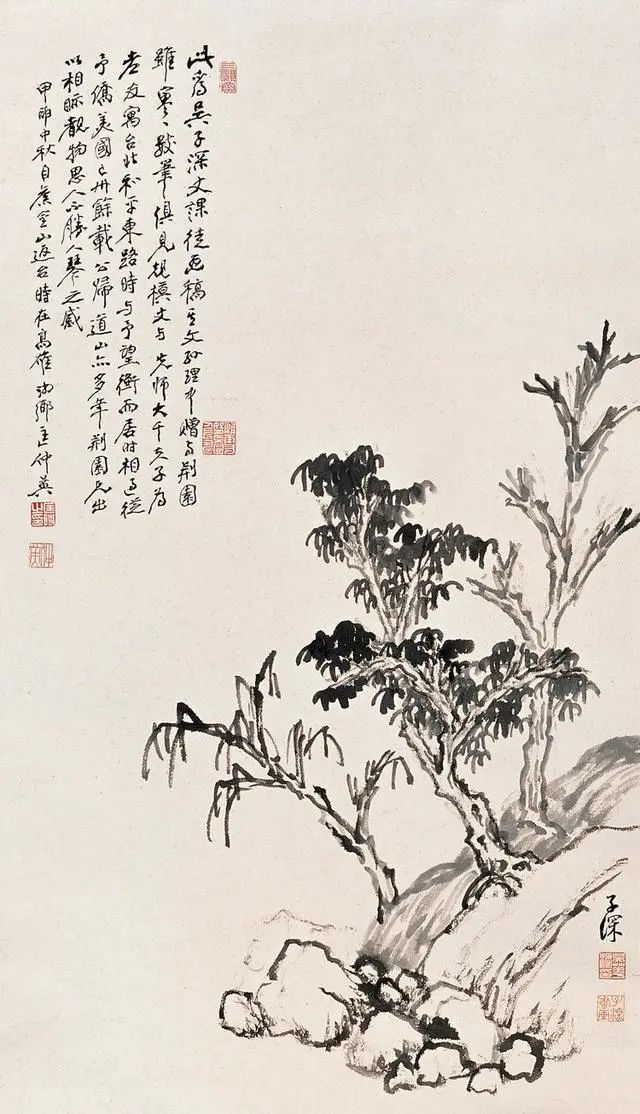 此為吳子深丈課徒畫稿其文孫理中贈与荆園
雖寥寥數筆俱見規模丈与先師大千夫子為
老友寓台北和平東路時与予望衡而居時相過從
予僑美國已卅餘載公歸道山亦多年荆園兄出
以相眎覩物思人不勝人琴之感
甲申中秋自舊金山返台時在高雄匡仲英
子深